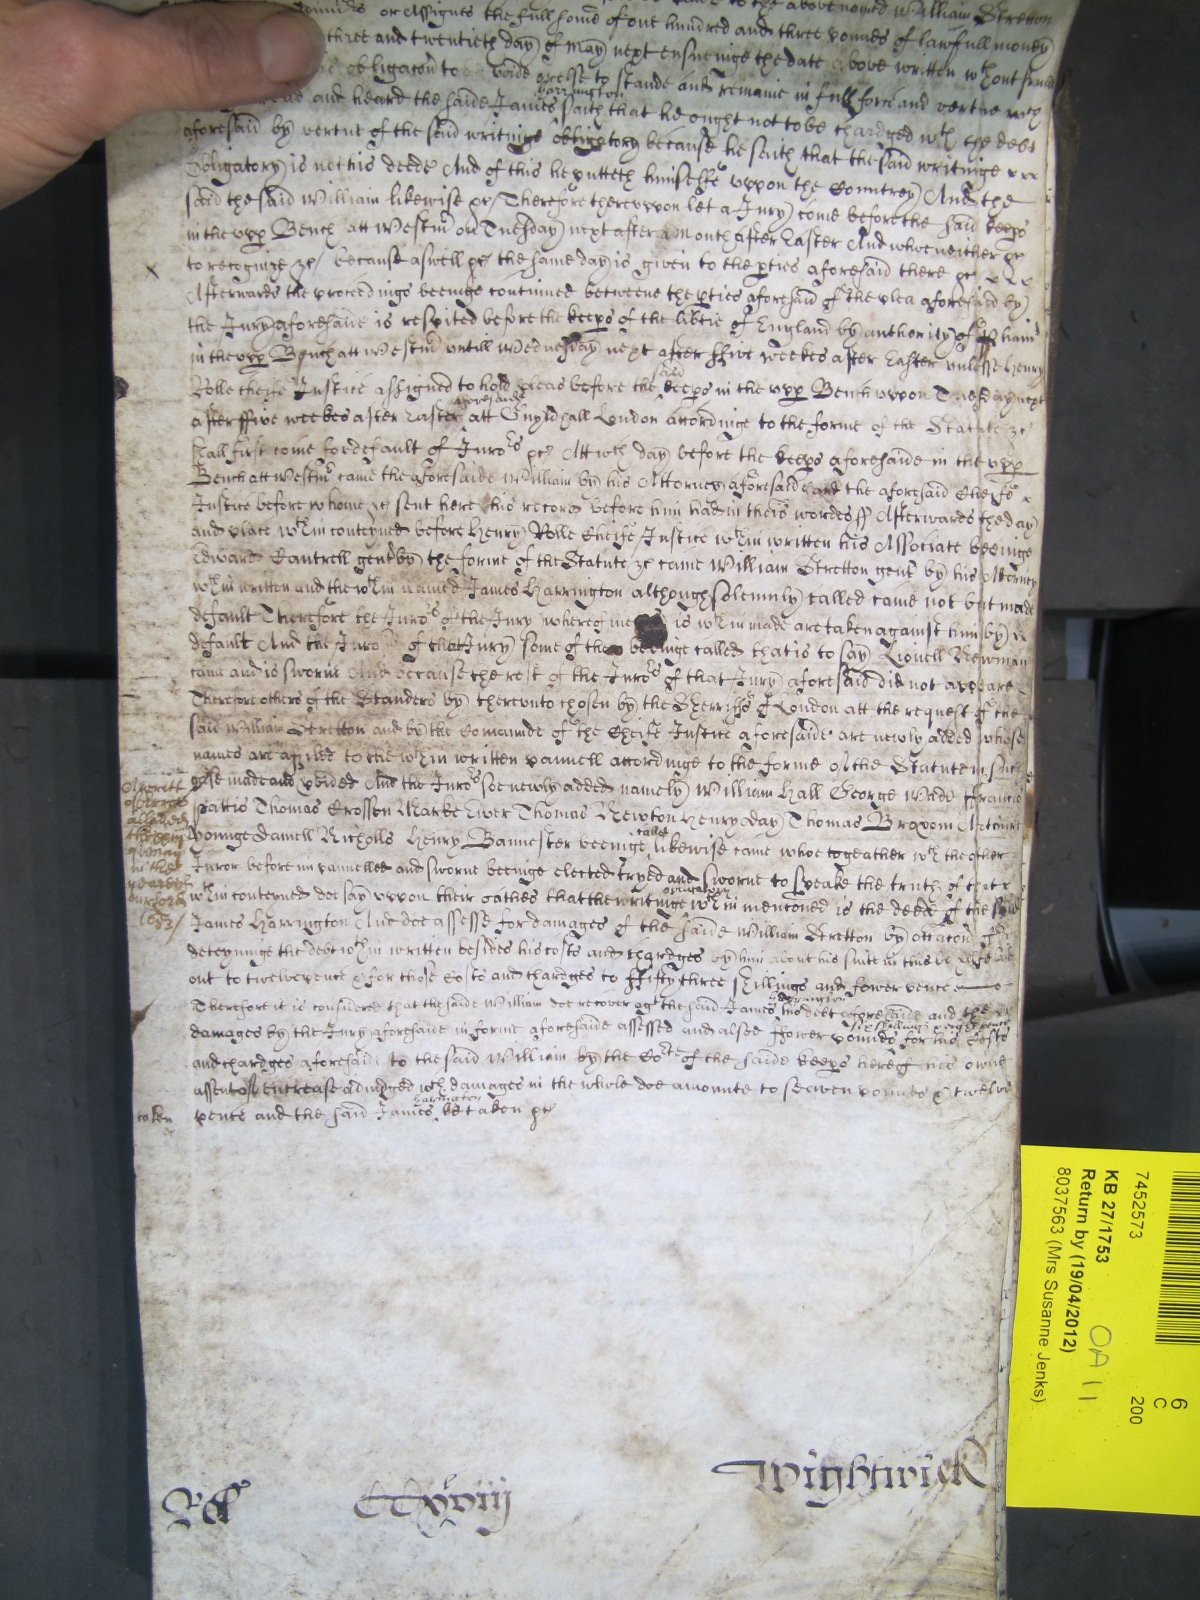 or Assignes the full some of one hundred and three poundes of lawfull money
three and twentieth day of May next ensueinge the date above written wthout fraud
obligacon to voide or else to stande and remaine in full force and vertue wch
and heard the saide James Harrington saith that he ought not to be chardged wth the debt
aforesaid by vertue of the said writinge obligatory because he saith that the said writinge
Obligatory is not his deede And of this he putteth himselfe uppon the Countrey And the
said the said William likewise &c Therefore thereuppon let a Jury come before the said keeps
in the upp Bench att Westm on Tuesday next after a Month after Easter And whoe neither &c
to recognize &c because aswell &c the same day is given to the pties aforesaid there &c
Afterwards the proceedings beeinge continued betweene the pties aforesaid of the plea aforesaid by
the Jury aforesaide is respited before the keeps of the libtie of England by authority of
in the upp Bench att Westm untill Wednesday next after ffive weekes after Easter unlesse Henry
Rolle cheife Justice assigned to hold pleas before the said keeps in the upp Bench uppon Tuesday next
after ffive weekes after Easter aforesaide att Guyldhall London accordinge to the forme of the Statute &c
shall first come for default of Juro's &c Att wch day before the keeps aforesaide in the upp
Bench att Westm came the aforesaide William by his Attorney aforesaid and the aforesaid Cheife
Justice before whome &c sent here his record before him had in theis wordes ss Afterwards the day
and place wthin conteyned before Henry Rolle Cheife Justice wthin written his Associate beeinge
Edward Cantrell gent by the forme of the Statute &c came William Stretton gent by his Attorney
wthin written and the wthin named James Harrington although solemnly called came not but made
default Therefore the Juro's of the Jury whereof is wthin made are taken against him by
default And the Juro of that Jury some of them beeinge called that is to say Lionell Newman
came and is sworne And because the rest of the Juro's of that Jury aforesaid did not appeare
Therefore others of the Standers by thereunto chosen by the Sherriffs of London att the request of the
said William Stretton and by the Comaunde of the Cheife Justice aforesaide are newly added whose
names are to the wthin written pannell accordinge to the forme of the Statute in such
case made and pvided And the Juro's soe newly added namely William Hall George Wade Francis
Pattis Thomas Crossen Marke Ewer Thomas Newton Henry Day Thomas Broxom Arthure
Younge Daniell Nicholls Henry Bannester beeinge called likewise came whoe togeather wth the other
Juror before impannelled and sworne beeinge elected tryed and sworne to speake the truth of the
wthin conteyned doe say uppon their oathes that the writinge obligatory wthin menconed is the deede of the said
James Harrington And doe assesse for damages of the saide William Stretton by occacon of
deteyninge the debt wthin written besides his costs and chardges by him about his suite in this behalfe laid
out to twelve pence & for those Costs and chardges to ffifty three shillings and fower pence
Therefore it is considered that the saide William doe recover agt the said James Harrington his debt aforesaide and the
damages by the Jury aforesaide in forme aforesaide assessed and alsoe ffower poundes for his Costs
and chardges aforesaid to the said William by the Cort of the saide keeps here of his owne
assent of encrease adiudged wch damages in the whole doe amounte to seaven poundes & twelve
pence and the said James Harrington be taken &c
taken
Wightwick
KB 27/1753
7452573
Return by (19/04/2012)
8037563 (Mrs Susanne Jenks)
6
C
200
OA 11